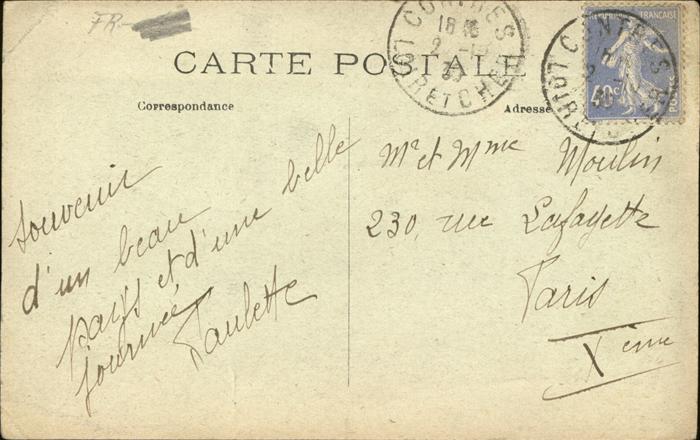 FR-
CARTE POSTALE
Correspondance
Adresse
CONTRES
LOIR-ET-CHER
RÉPUBLIQUE FRANÇAISE
40c
CONTRES
Souvenir
d'un beau
pays et d'une belle
journée
Paulette
Mr et Mme Moulin
230, rue Lafayette
Paris
Xème